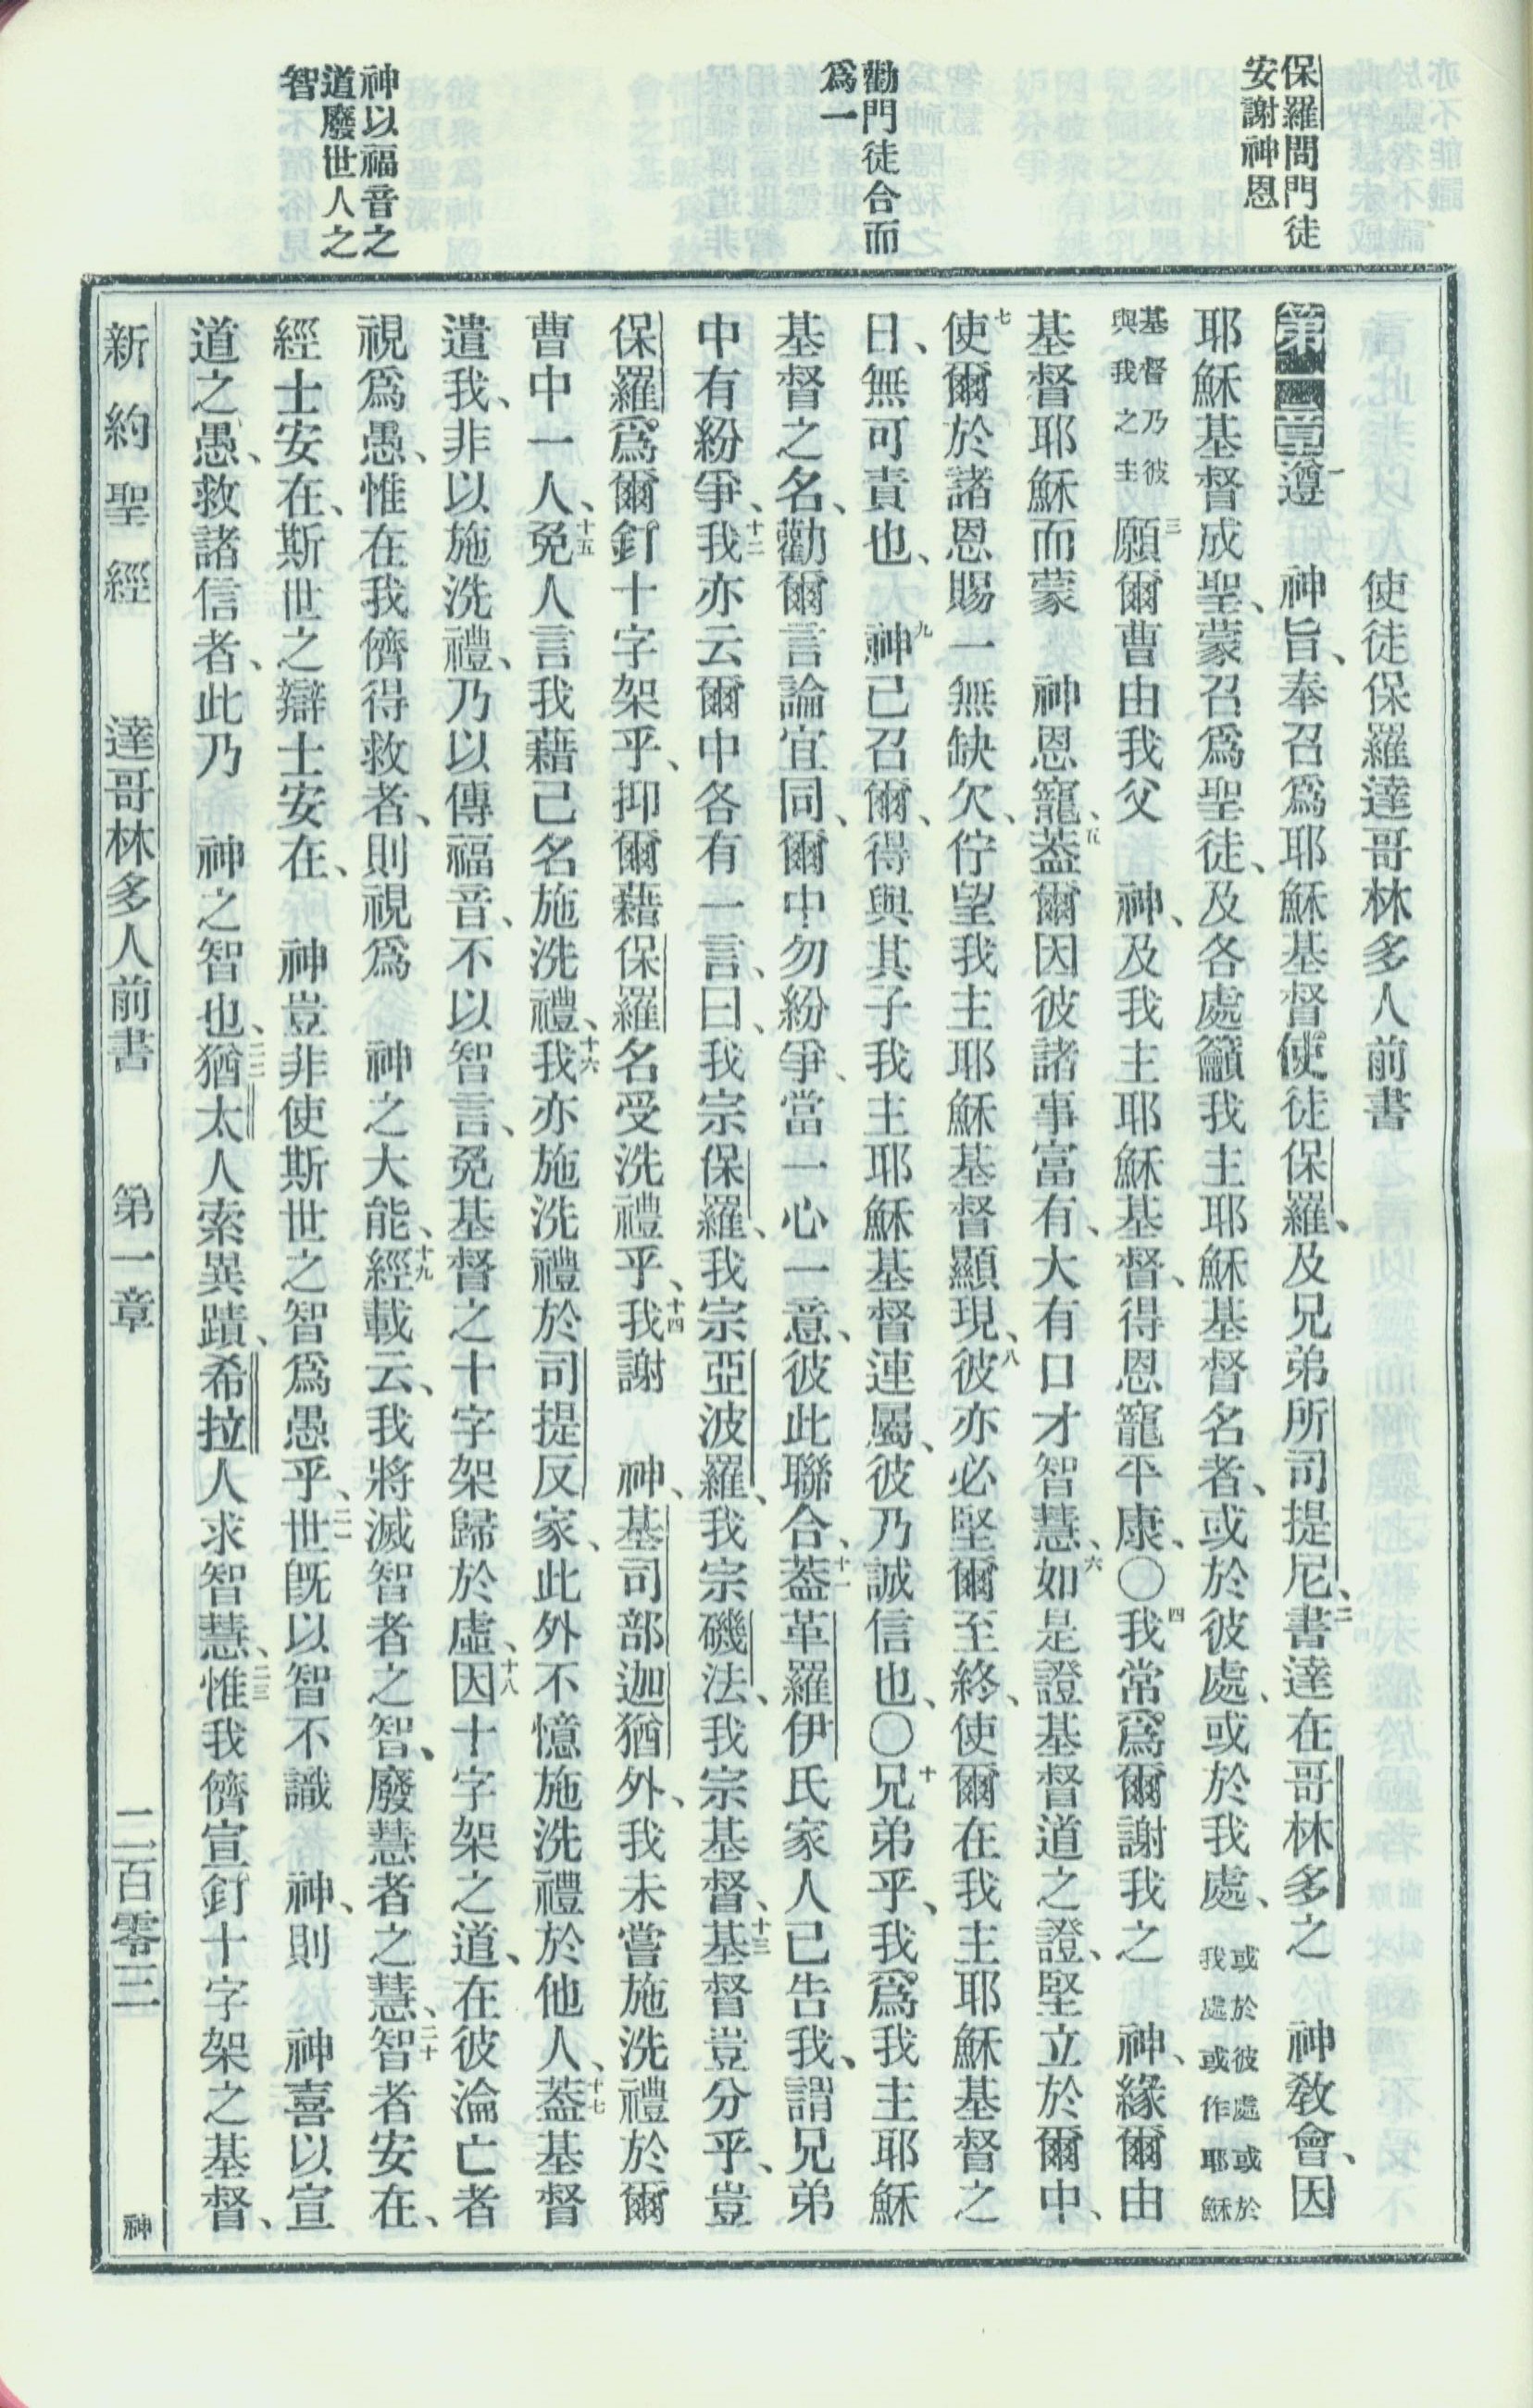 保羅問門徒
安謝神恩
勸門徒合而
爲一
神以福音之
道廢世人之
智
使徒保羅達哥林多人前書
第一章一遵　神旨、奉召爲耶穌基督使徒保羅、及兄弟所司提尼、二書達在哥林多之　神教會、因
耶穌基督成聖、蒙召爲聖徒、及各處籲我主耶穌基督名者、或於彼處、或於我處、或於彼處或於我處或作耶穌
基督乃彼與我之主三願爾曹由我父　神、及我主耶穌基督、得恩寵平康、〇四我常爲爾謝我之　神、緣爾由
基督耶穌而蒙　神恩寵、五蓋爾因彼諸事富有、大有口才智慧、六如是證基督道之證、堅立於爾中、
七使爾於諸恩賜一無缺欠、佇望我主耶穌基督顯現、八彼亦必堅爾至終、使爾在我主耶穌基督之
日、無可責也、九神已召爾、得與其子我主耶穌基督連屬、彼乃誠信也、〇十兄弟乎、我爲我主耶穌
基督之名、勸爾言論宜同、爾中勿紛爭、當一心一意、彼此聯合、十一蓋革羅伊氏家人已告我、謂兄弟
中有紛爭、十二我亦云爾中各有一言、曰、我宗保羅、我宗亞波羅、我宗磯法、我宗基督、十三基督豈分乎、豈
保羅爲爾釘十字架乎、抑爾藉保羅名受洗禮乎、十四我謝　神、基司部迦猶外、我未嘗施洗禮於爾
曹中一人、十五免人言我藉己名施洗禮、十六我亦施洗禮於司提反家、此外不憶施洗禮於他人、十七蓋基督
遣我、非以施洗禮、乃以傳福音、不以智言、免基督之十字架歸於虛、十八因十字架之道、在彼淪亡者
視爲愚、惟在我儕得救者、則視爲　神之大能、十九經載云、我將滅智者之智、廢慧者之慧、二十智者安在、
經士安在、斯世之辯士安在、　神豈非使斯世之智爲愚乎、二一世既以智不識　神、則　神喜以宣
道之愚、救諸信者、此乃　神之智也、二二猶太人索異蹟、希拉人求智慧、二三惟我儕宣釘十字架之基督、
新約聖經　達哥林多人前書　第一章　二百零三　神